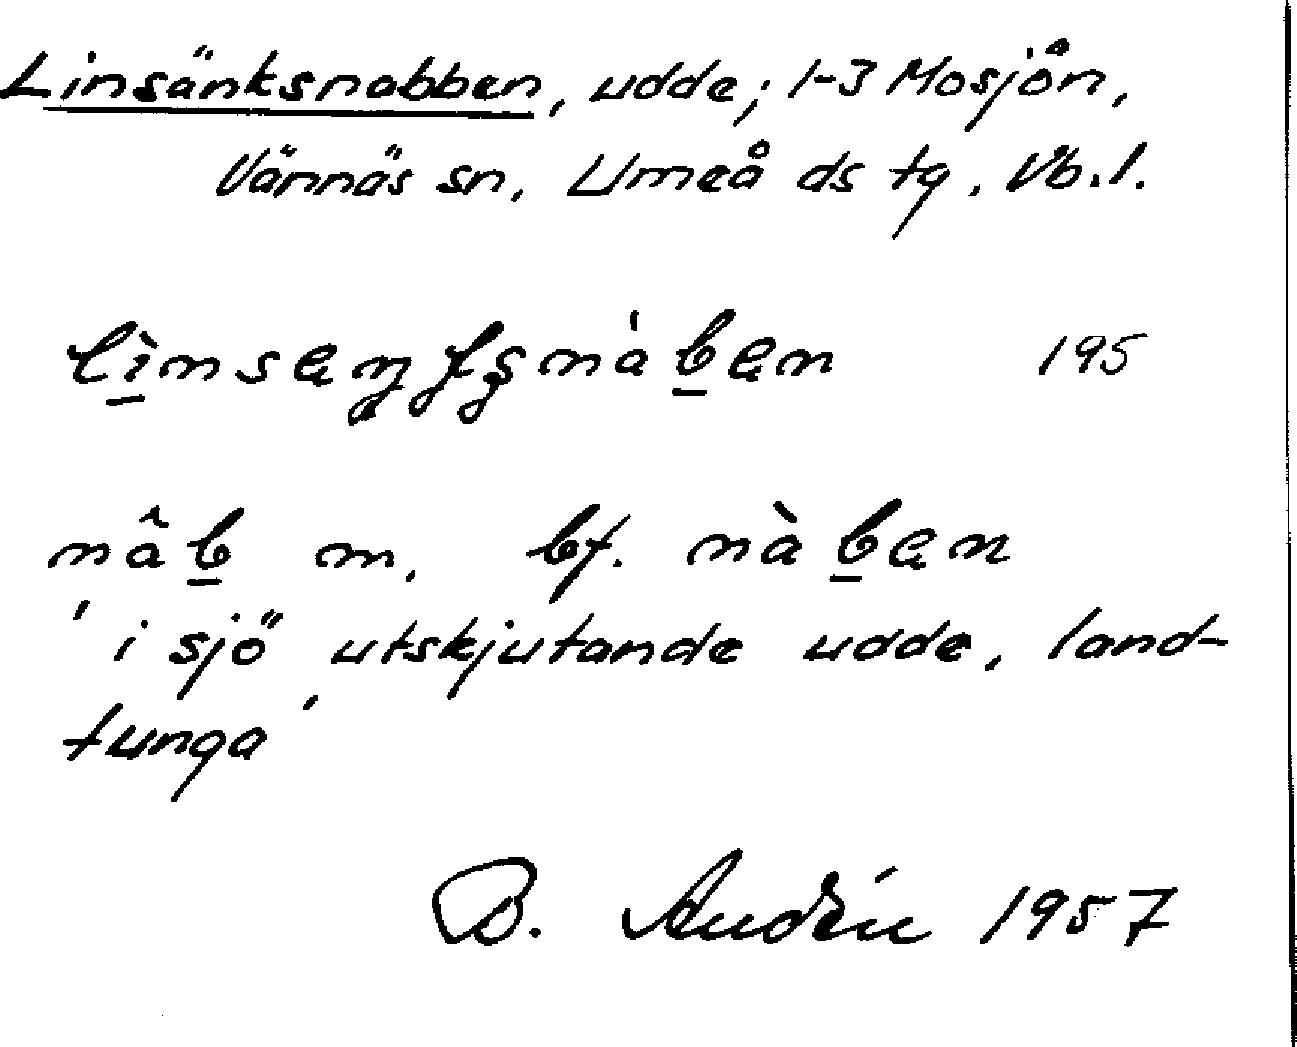 Linsänksnabben, udde; 1-3 Mosjön,
Vännäs sn, Umeå ds tg, Vb. l.
lìnsaŋksnàban 195
nâb m. bf. nàban
'i sjö utskjutande udde, land-
tunga'
B. Audén 1957